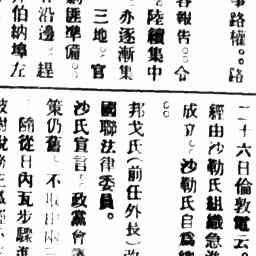 事路權。。路
報告。。今
陸續集中
亦逐漸集
三地。。官
匪準備。。
沿邊。趕
伯納埠左
二十六日倫敦電云。
經由沙勒氏組織急進
成立。沙勒氏自爲總
。。
邦戈氏(前任外長)改
國聯法律委員。
沙氏宣言。政黨會
策仍舊。不取
隨從日內瓦步驟進